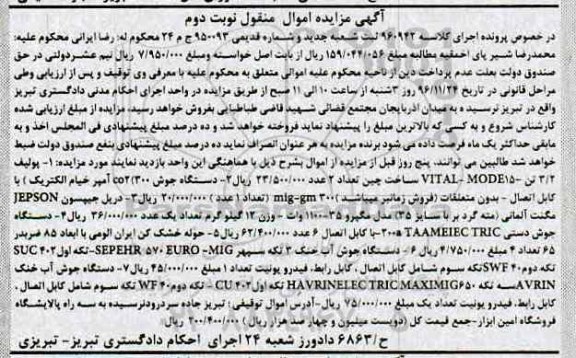 آگهی مزایده اموال منقول نوبت دوم
در خصوص پرونده اجرای کلاسه ۹۶۰۹۴۲ ثبت شعبه جدید و شماره قدیمی ۹۵۰۰۹۳ ج م ۲۴ محکوم له: رضا ایرانی محکوم علیه:
محمدرضا شیر پای احمقیه مطالبه مبلغ ۱۵۹/۰۴۴/۰۵۶ ریال از بابت اصل خواسته ومبلغ ۷/۹۵۰/۰۰۰ ریال نیم عشردولتی در حق
صندوق دولت بعلت عدم پرداخت دین از ناحیه محکوم علیه اموالی متعلق به محکوم علیه با معرفی وی توقیف و پس از ارزیابی وطی
مراحل قانونی در تاریخ ۹۶/۱۱/۲۴ روز ۳شنبه از ساعت ۱۰ الی ۱۱ صبح از طریق مزایده در واحد اجرای احکام مدنی دادگستری تبریز
واقع در تبریز نرسیده به میدان اذربایجان مجتمع قضائی شهید قاضی طباطبایی بفروش خواهد رسید، مزایده از مبلغ ارزیابی شده
کارشناس شروع و به کسی که بالاترین مبلغ را پیشنهاد نماید فروخته خواهد شد و ده درصد مبلغ پیشنهادی فی المجلس اخذ و به
مابقی حداکثر یک ماه فرصت داده می شود برنده مزایده به هر عنوان انصراف نماید ده درصد مبلغ پیشنهادی بنفع صندوق دولت ضبط
خواهد شد طالبین می توانند، پنج روز قبل از مزایده از اموال بشرح ذیل با هماهنگی این واحد بازدید نمایند مورد مزایده: ۱- پولیف
۳/۲ تن VITAL- MODE۱۵- ساخت چین تعداد ۲ عدد ۲۳/۵۰۰/۰۰۰ ریال۲- دستگاه جوش co۲(۳۰۰ آمپر خیام الکتریک ) با
کابل اتصال - بدون متعلقات (فروش زمانبر میباشد) mig-gm ۳۰۰ (تعداد ۱ عدد ) ۲۰/۰۰۰/۰۰۰ ریال۳- دریل جیپسون JEPSON
مگنت آلمانی (مته گرد بر با سایز ۳۵) مدل مگبرو ۳۵-۱۱۰۰ وات - وزن ۱۲ کیلو گرم تعداد یک عدد ۳۶/۰۰۰/۰۰۰ ریال۴- دستگاه
جوش دستی TAAMEIEC TRIC ۳۰۰a- با کابل اتصال ۶ عدد ۶۲/۴۰۰/۰۰۰ ریال ۵- حوله خشک کن ایران الومی با ابعاد ۸۵ ضربدر
۶۵ تعداد ۴ مبلغ ۴/۷۵۰/۰۰۰ ریال ۶- دستگاه جوش آب خنک ۳ تکه سپهر SEPEHR ۵۷۰ EURO -MIG-تکه اول۴۰۲ SUC
تکه دوم۴۰ SWFتکه سوم شامل کابل اتصال ، کابل رابط، فیدرو یونیت تعداد ۱ مبلغ ۴۵/۰۰۰/۰۰۰ ریال۷- دستگاه جوش آب خنک
AVRINسه تکه HAVRINELEC TRIC MAXIMIG۶۵۰ تکه اول۴۰۲ CU - تکه دوم۴۰ WF تکه سوم شامل کابل اتصال ،
کابل رابط، فیدرو یونیت تعداد یک مبلغ ۷۵/۰۰۰/۰۰۰ ریال-آدرس اموال توقیفی: تبریز جاده سردرودنرسیده به سه راه پالایشگاه
فروشگاه امین ابزار-جمع قیمت کل (دویست میلیون و چهار صد هزار ریال ) ۲۰۰/۴۰۰/۰۰۰ ریال
ح/۶۸۶۳ دادورز شعبه ۲۴ اجرای احکام دادگستری تبریز- تبریزی